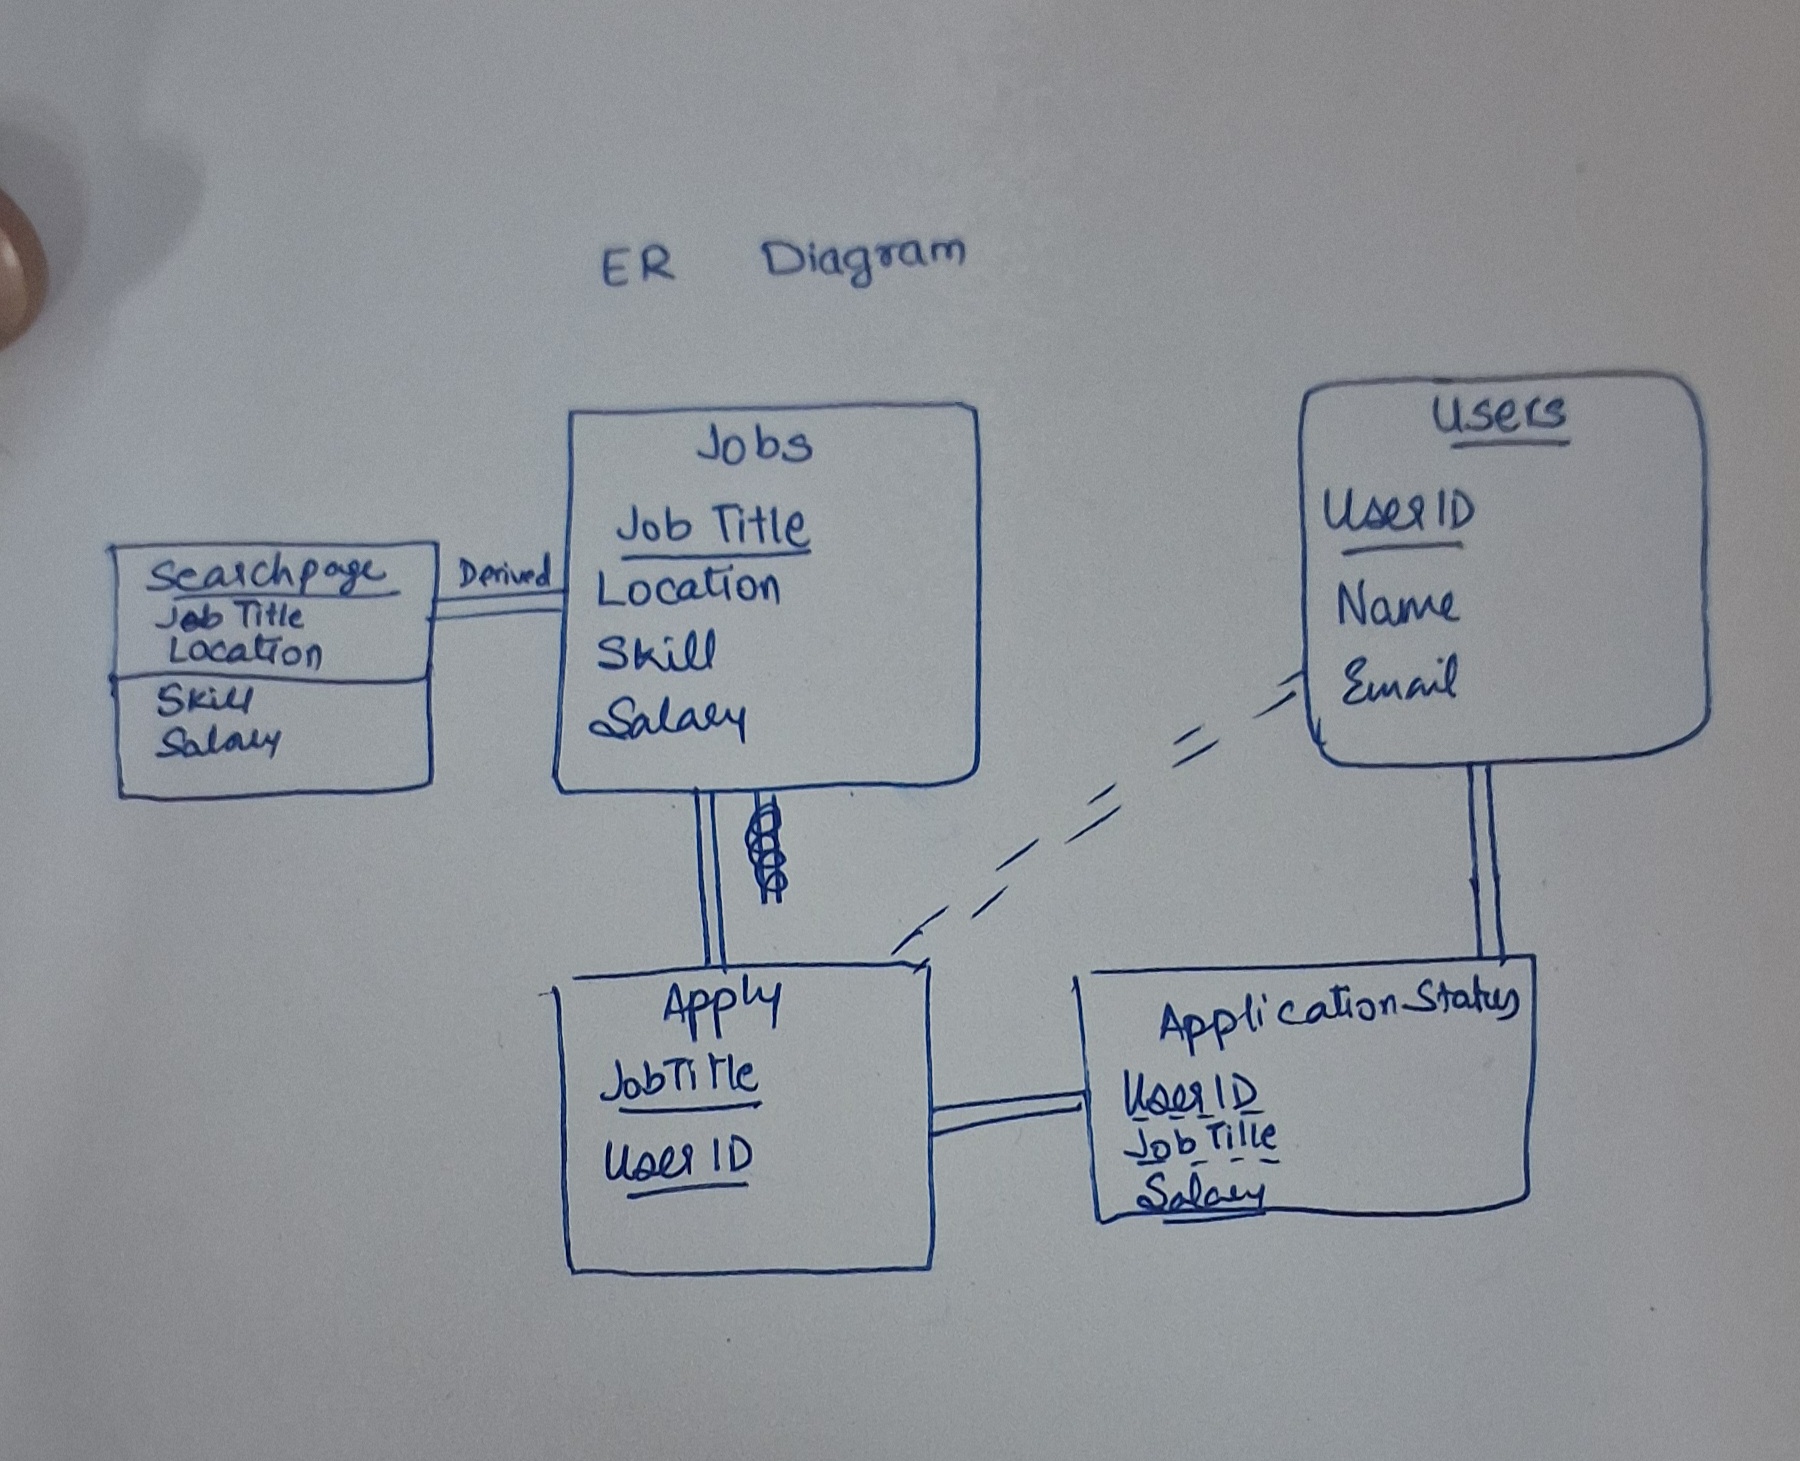 ER Diagram
Searchpage
Job Title
Location
Skill
Salary
Derived
Jobs
Job Title
Location
Skill
Salary
Users
User ID
Name
Email
Apply
Job Title
User ID
Application Status
User ID
Job Title
Salary